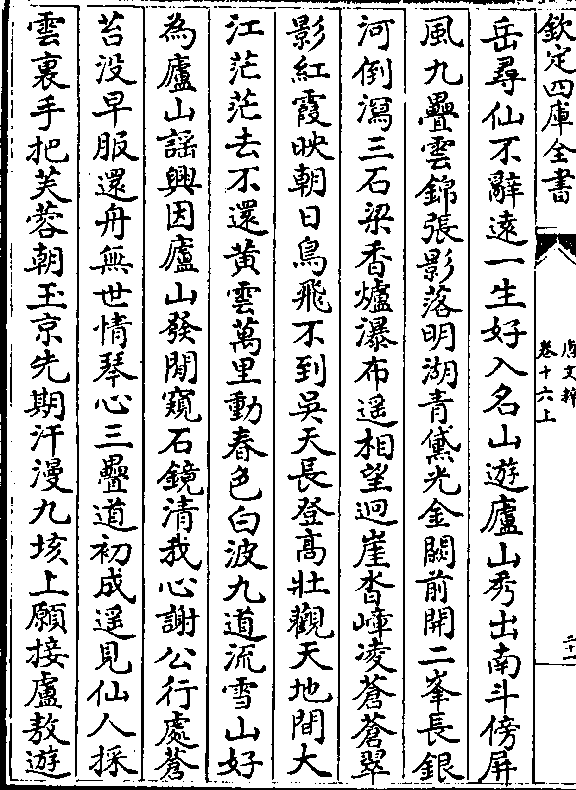 欽定四庫全書
唐文粹
卷十六上
二十一
岳尋仙不辭遠一生好入名山遊廬山秀出南斗傍屏
風九疊雲錦張影落明湖青黛光金闕前開二峯長銀
河倒瀉三石梁香爐瀑布遥相望迴崖沓嶂凌蒼蒼翠
影紅霞映朝日鳥飛不到吳天長登髙壯觀天地間大
江茫茫去不還黄雲萬里動春色白波九道流雪山好
為廬山謡興因廬山發閒窺石鏡清我心謝公行處蒼
苔没早服還丹無世情琴心三疊道初成遥見仙人採
雲裏手把芙蓉朝玉京先期汗漫九垓上願接盧敖遊